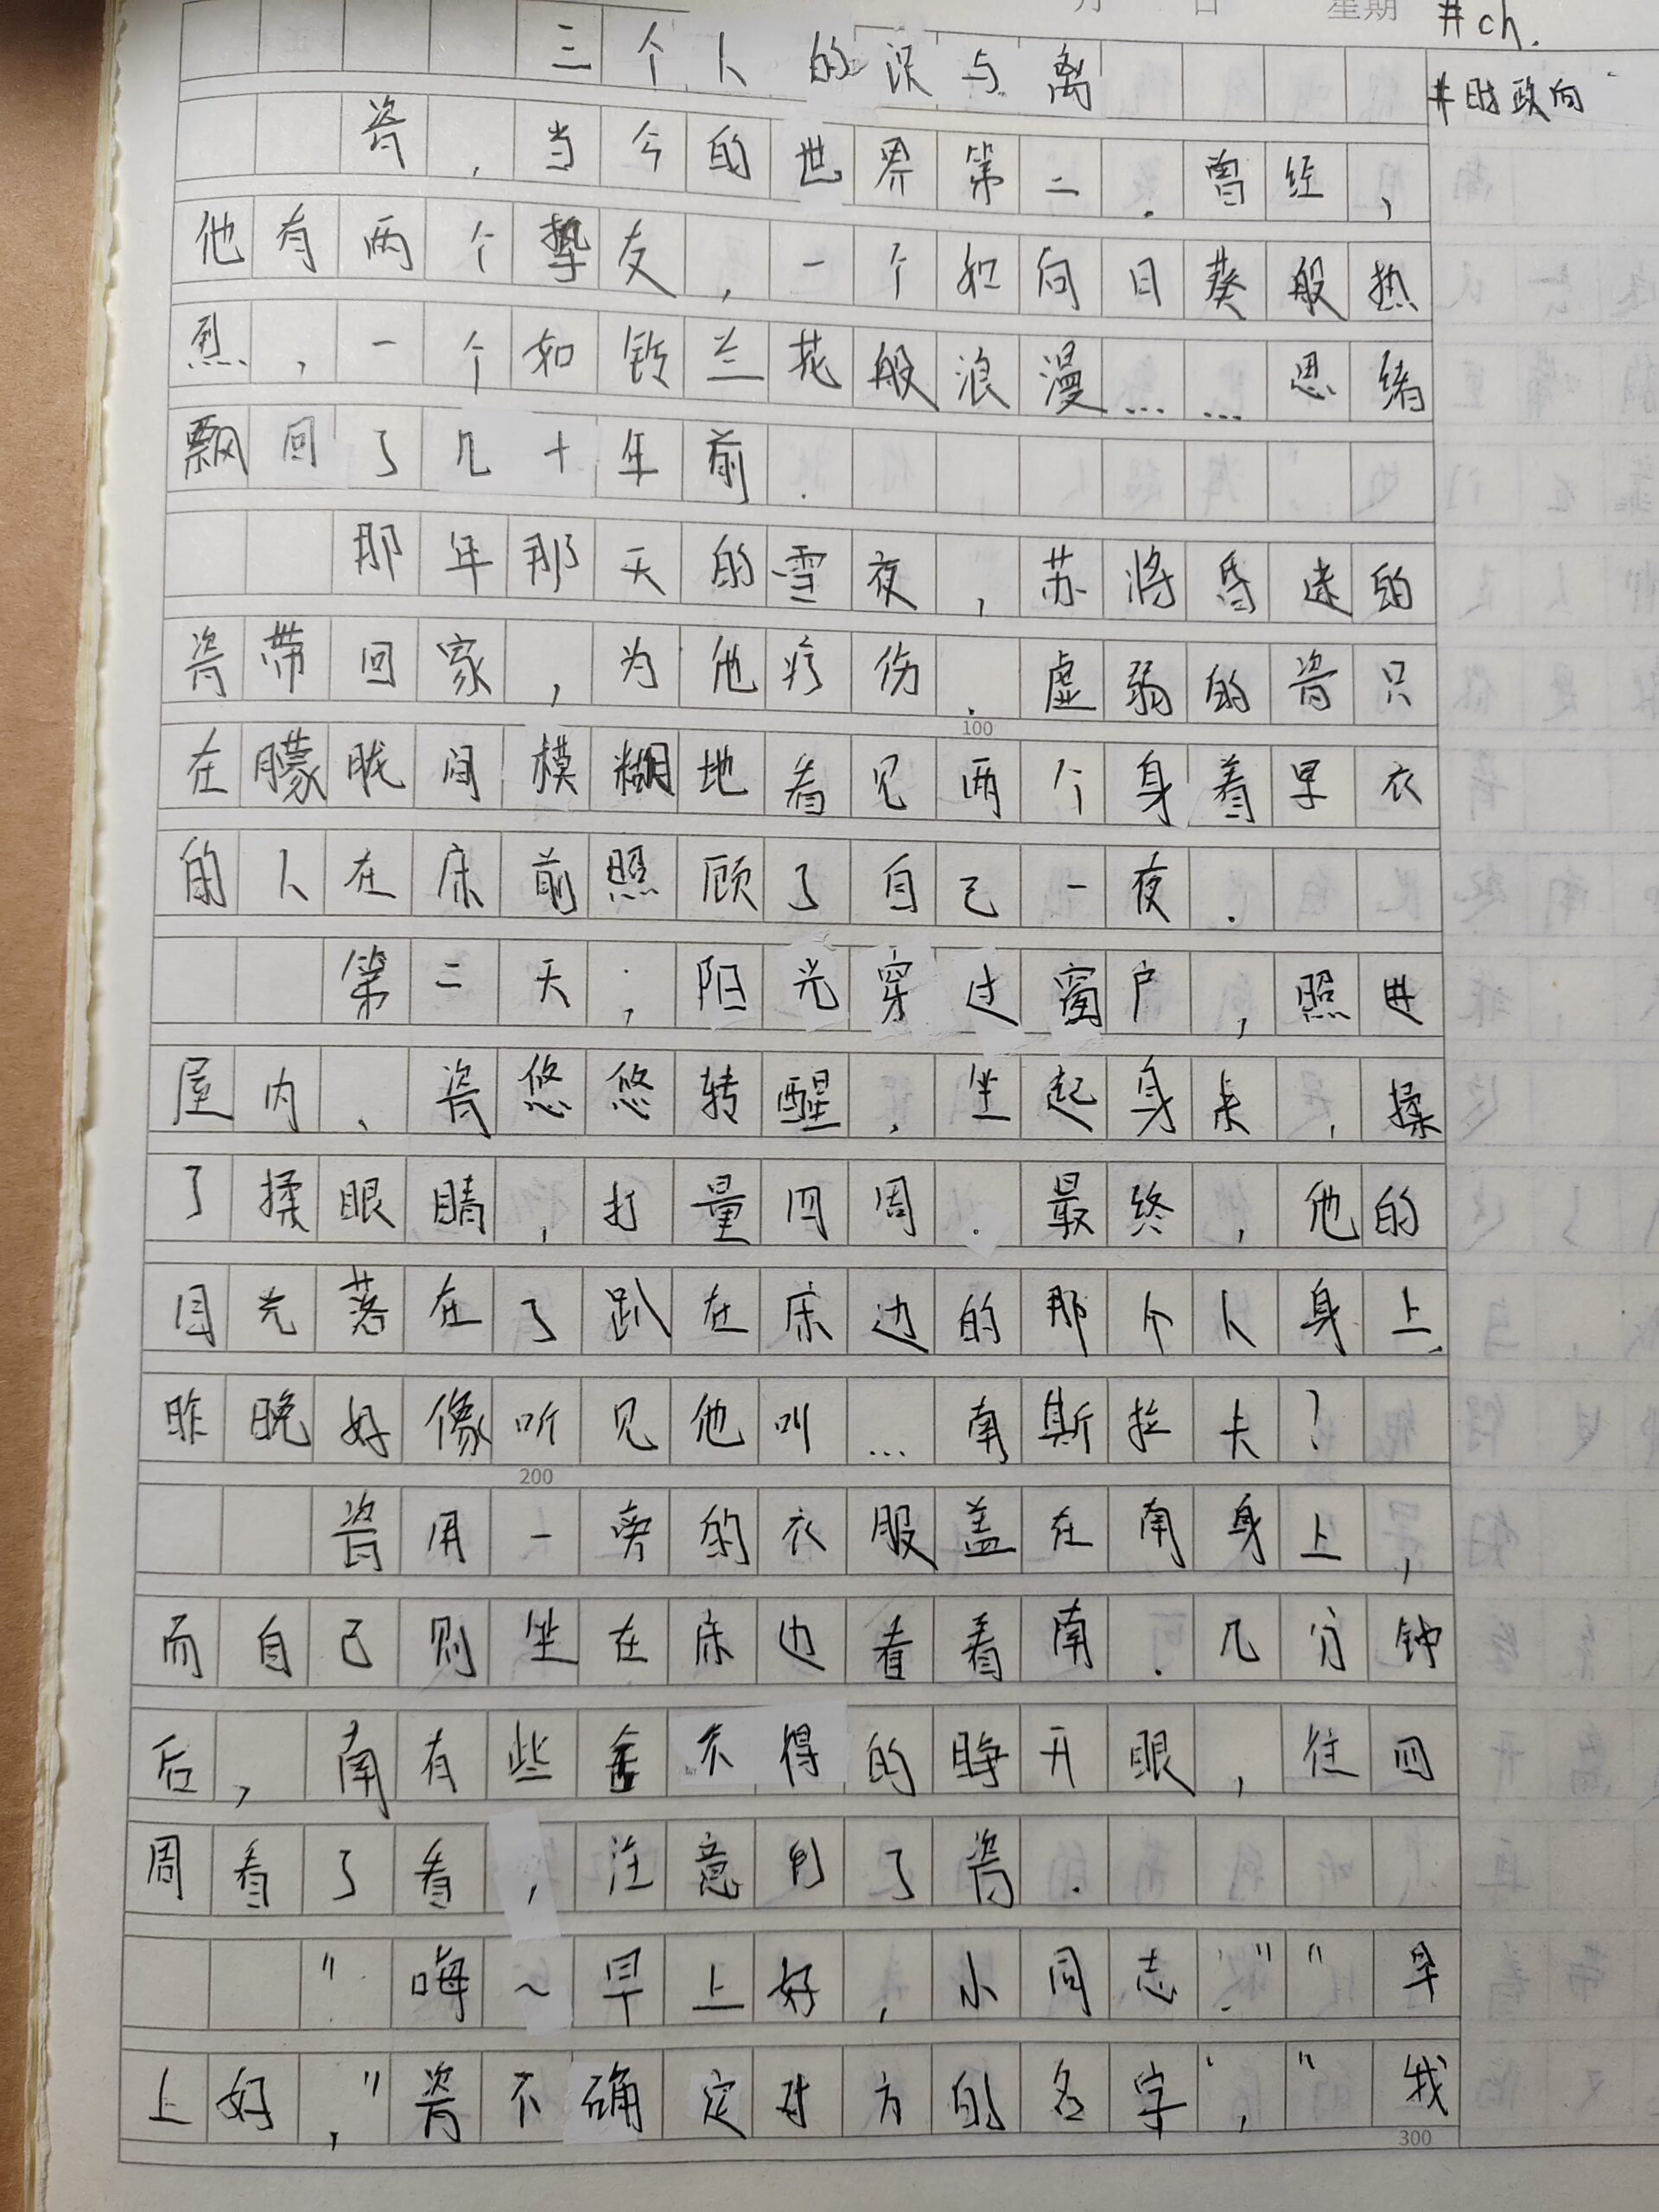 月 日 星期 #ch.
三个人的识与离
#时政向
瓷,当今的世界第二.曾经,
他有两个挚友,一个如向日葵般热
烈,一个如铃兰花般浪漫……思绪
飘回了几十年前.
那年那天的雪夜,苏将昏迷的
瓷带回家,为他疗伤.虚弱的瓷只
100
在朦胧间模糊地看见两个身着军衣
的人在床前照顾了自己一夜.
第二天,阳光穿过窗户,照进
屋内、瓷悠悠转醒,坐起身来,揉
了揉眼睛,打量四周.最终,他的
目光落在了趴在床边的那个人身上.
昨晚好像听见他叫…南斯拉夫?
200
瓷用一旁的衣服盖在南身上,
而自己则坐在床边看着南.几分钟
后,南有些不得的睁开眼,往四
周看了看,注意到了瓷.
"嗨~早上好,小同志.""早
上好,"瓷不确定对方的名字,"我
300